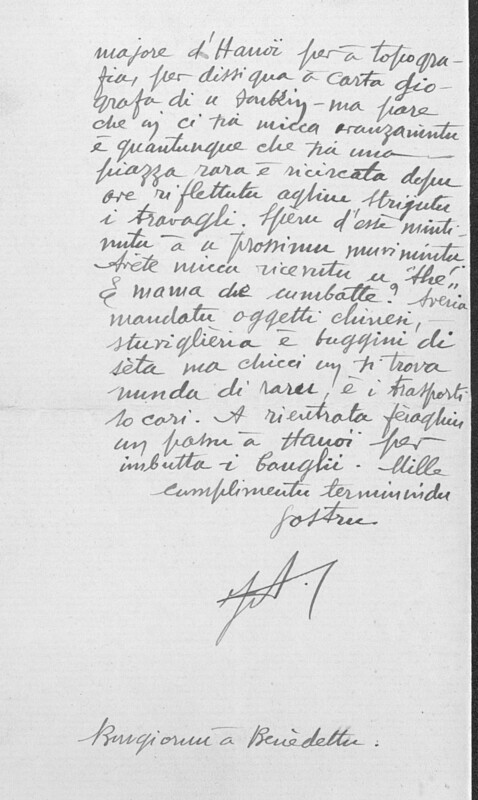 majore d'Hanoï per à topogra-
fia, per dissiqua a carta gio-
grafa di u Tonkin - ma pare
che un ci hà micca avanzamentu
è quantunque che hà una
piazza rara è ricircata dopu
avè riflettutu aghiu strigutu
i travagli. Speru d'esse minti-
nutu à u prossimu muvimintu
Avète micca ricevutu u "thé"
È mama chè cumbatte? Averia
mandatu oggetti chinesi,
stuviglieria è buggini di
sèta ma chicci un si trova
nunda di raru, è i trasporti
so cari. A rientrata feraghiu
un passu à Hanoï per
imbuttà i bauglii. Mille
cumplimentu terminindu
Vostru
Bungiornu à Benedettu.